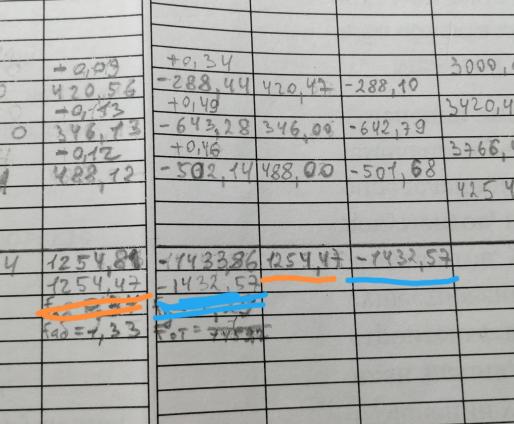 +0,34
-0,09 3000,
420,56 -288,44 420,47 -288,10
-0,13 +0,49 3420,4
0 346,13 -643,28 346,00 -642,79
-0,12 +0,46 3766,
488,12 -502,14 488,00 -501,68
4254
4 1254,81 -1433,86 1254,47 -1432,57
1254,47 -1432,57
fабс=1,33 fот=